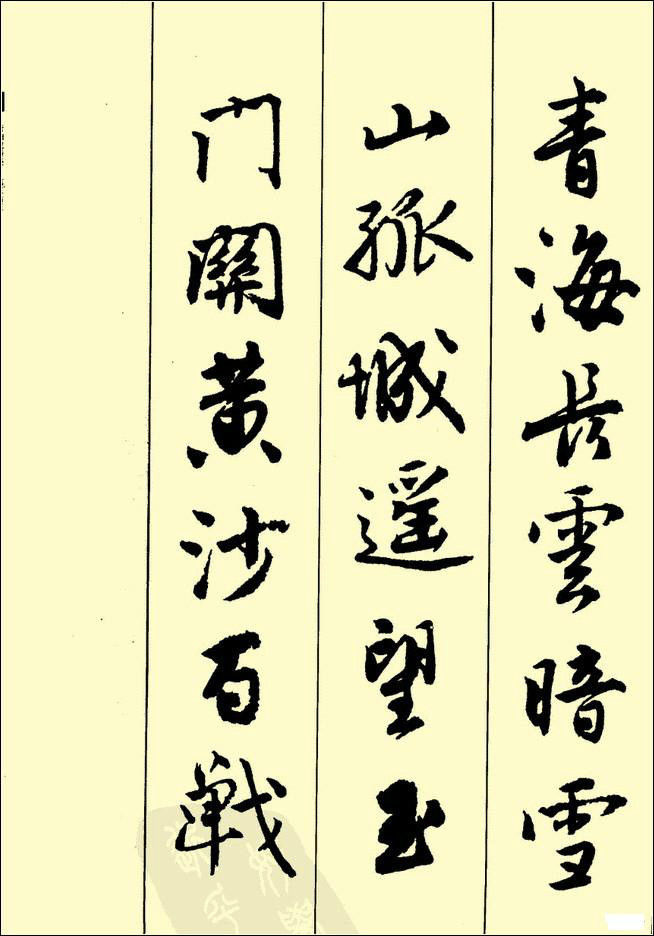 青海長雲暗雪
山孤城遥望玉
门關黄沙百戰